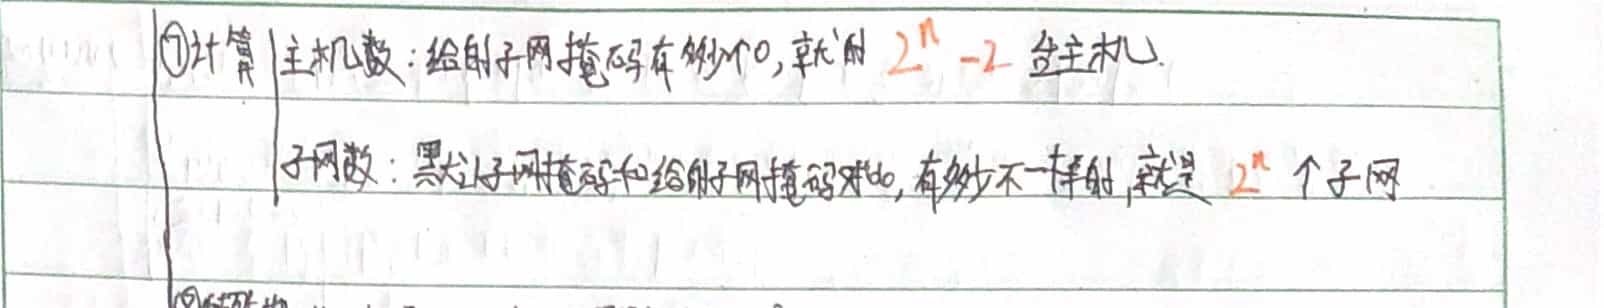 ①计算 主机数：给的子网掩码有多少个0，就的 2ⁿ -2 台主机.
子网数：黑犬认子网掩码和给的子网掩码对比，有多少不一样的，就是 2ⁿ 个子网